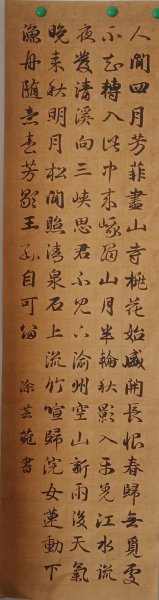 人間四月芳菲盡山寺桃花始盛開長恨春歸無覓處
不知轉入此中來峨眉山月半輪秋影入平羌江水流
夜發清溪向三峽思君不見下渝州空山新雨後天氣
晚來秋明月松間照清泉石上流竹喧歸浣女蓮動下
漁舟隨意春芳歇王孫自可留 涂芸菀書